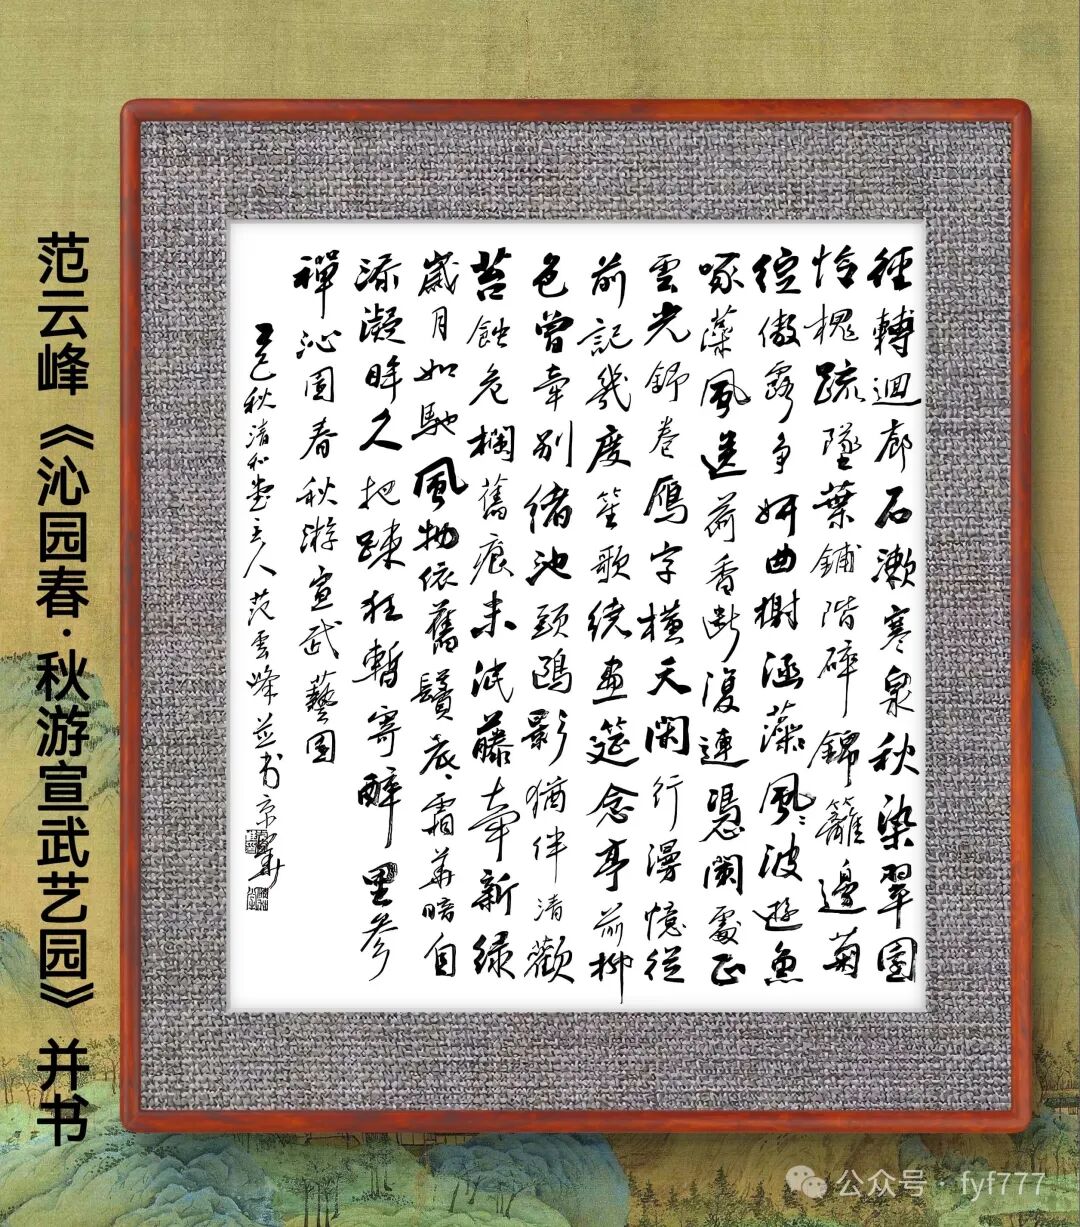 范云峰《沁园春·秋游宣武艺园》并书
徑轉迴廊石漱寒泉秋染翠園
恰槐疏墜葉鋪階碎錦籬邊菊
綻傲露爭妍曲榭涵藻風波遊魚
啄藻風送荷香斷復連憑闌處正
雲光舒卷雁字橫天閑行漫憶從
前記幾度笙歌繞畫筵念亭前柳
色曾牽別緒池頭鷗影猶伴清歡
苔蝕危欄舊痕未泯藤牽新綠
歲月如馳風物依舊鬢底霜華暗自
添凝眸久把疎狂暫寄醉里參
禪沁園春秋游宣武藝園
乙巳秋清和堂主人范雲峰並書京華
公众号·fyf777